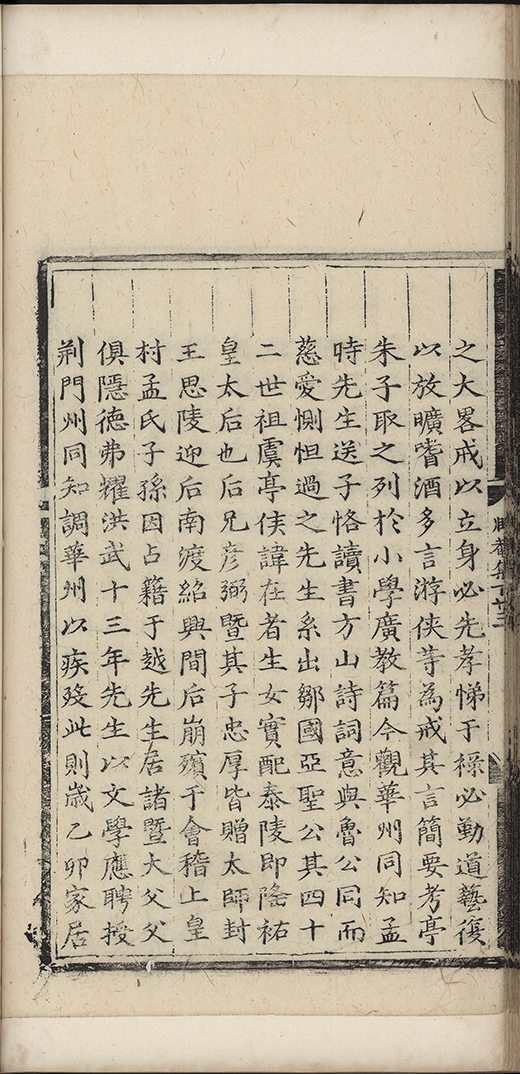 之大畧戒以立身必先孝悌于祿必勤道藝復
以放曠嗜酒多言游俠等為戒其言簡要考亭
朱子取之列於小學廣教篇今觀華州同知孟
時先生送子恪讀書方山詩詞意與魯公同而
慈愛惻怛過之先生系出鄒國亞聖公其四十
二世祖虞亭侯諱在者生女實配泰陵即隆祐
皇太后也后兄彦弼暨其子忠厚皆贈太師封
王思陵迎后南渡紹興間后崩殯于會稽上皇
村孟氏子孫因占籍于越先生居諸暨大父父
俱隱德弗耀洪武十三年先生以文學應聘授
荆門州同知調華州以疾殁此則歲乙卯家居
集